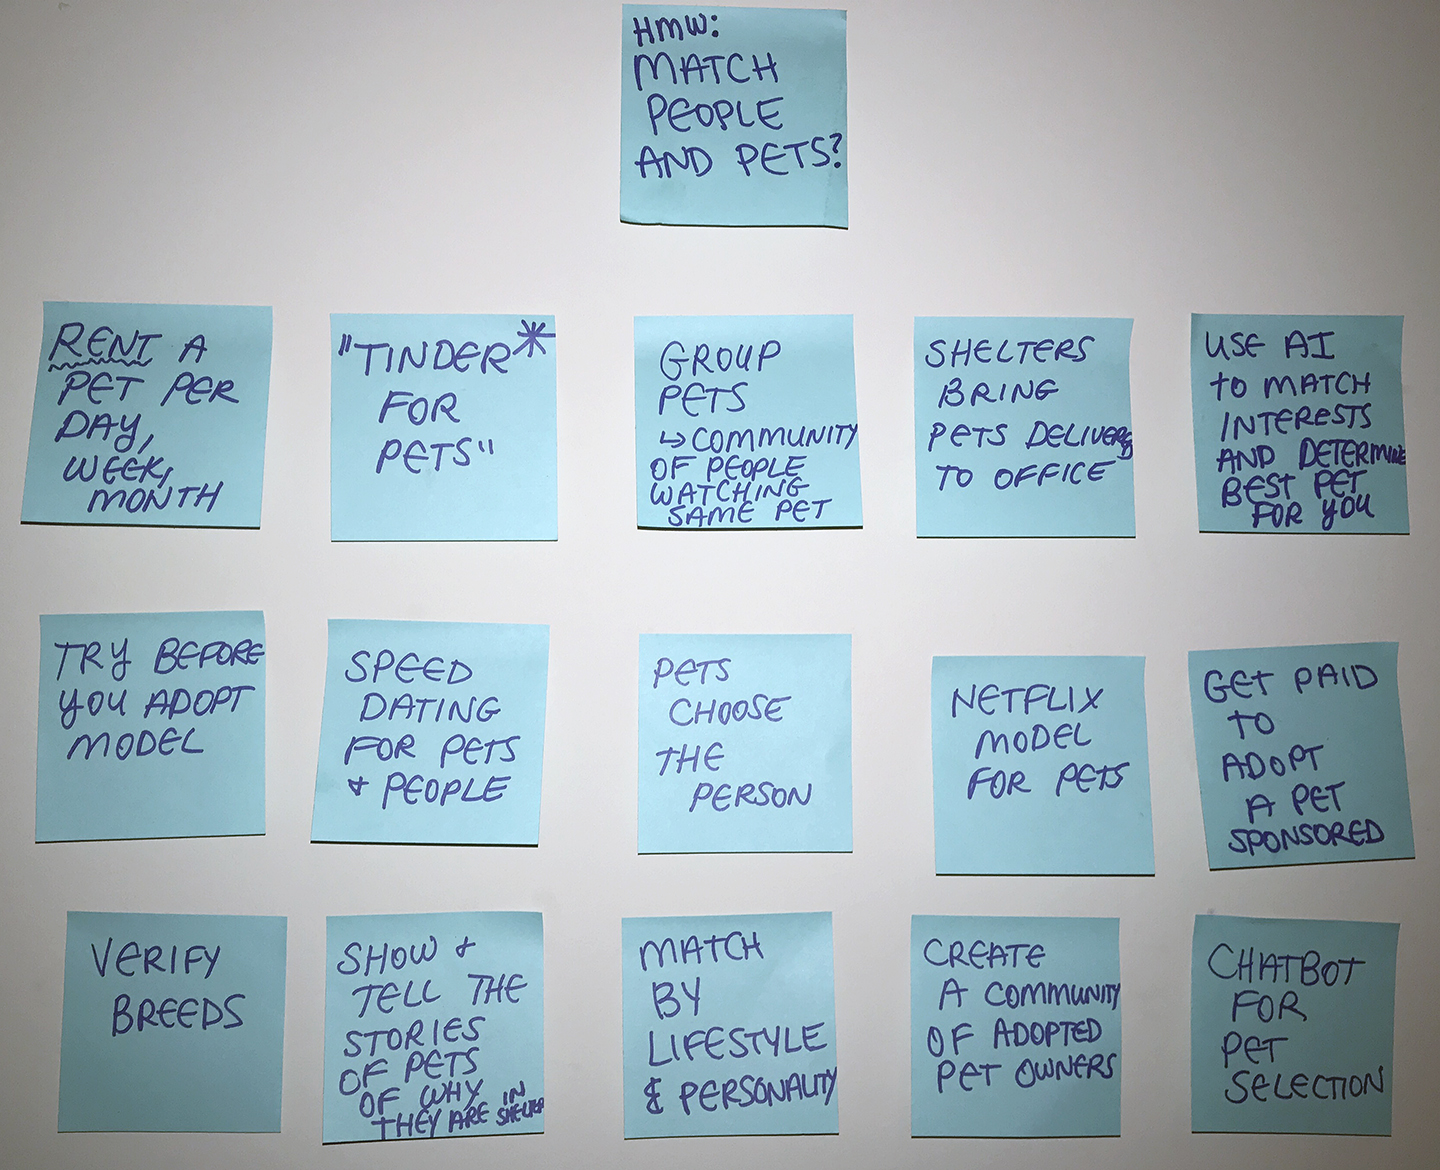 HMW:
MATCH
PEOPLE
AND PETS?
RENT A
PET PER
DAY,
WEEK,
MONTH
"TINDER*
FOR
PETS"
GROUP
PETS
↳ COMMUNITY
OF PEOPLE
WATCHING
SAME PET
SHELTERS
BRING
PETS DELIVERY
TO OFFICE
USE AI
TO MATCH
INTERESTS
AND DETERMINE
BEST PET
FOR YOU
TRY BEFORE
YOU ADOPT
MODEL
SPEED
DATING
FOR PETS
& PEOPLE
PETS
CHOOSE
THE
PERSON
NETFLIX
MODEL
FOR PETS
GET PAID
TO
ADOPT
A PET
SPONSORED
VERIFY
BREEDS
SHOW &
TELL THE
STORIES
OF PETS
OF WHY
THEY ARE IN
SHELTER
MATCH
BY
LIFESTYLE
& PERSONALITY
CREATE
A COMMUNITY
OF ADOPTED
PET OWNERS
CHATBOT
FOR
PET
SELECTION